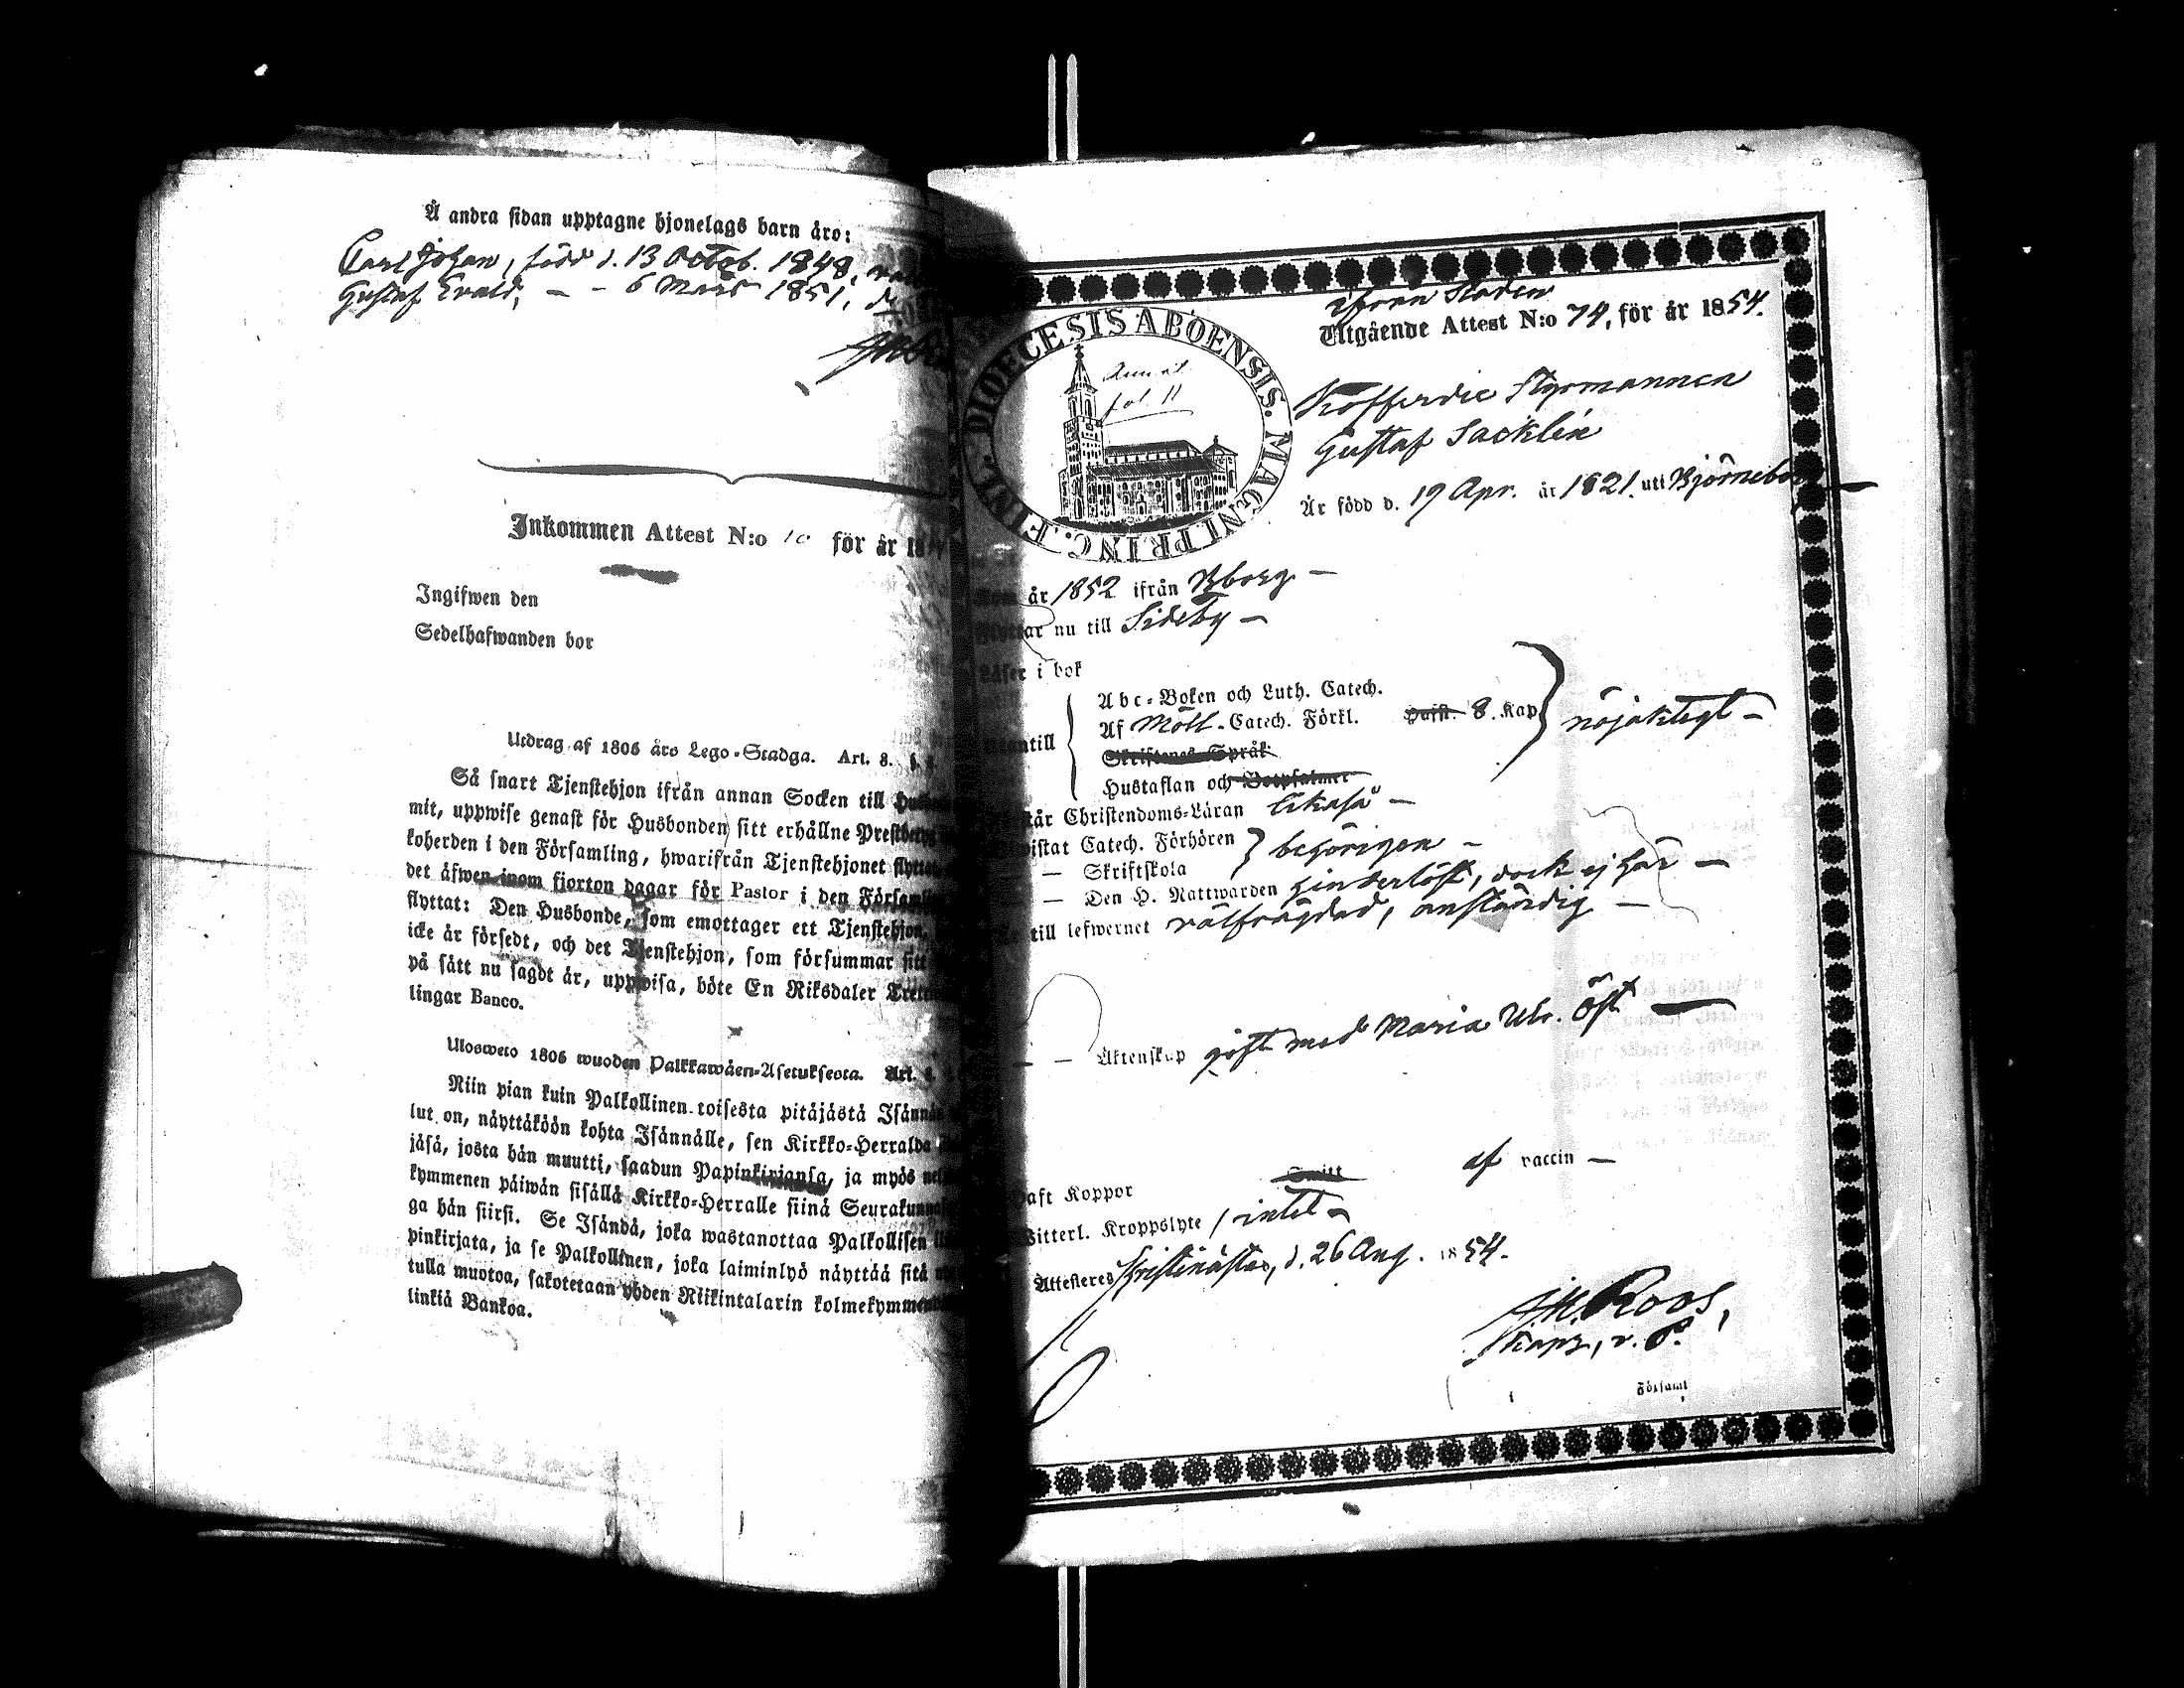 Å andra sidan upptagne hjonelags barn äro:
Carl Johan, född d. 13 Octob. 1848,
Gustaf Evald, — - 6 Mars 1851,
Inkommen Attest N:o 10 för år 18
Ingifwen den
Sedelhafwanden bor
Utdrag af 1805 års Lego-Stadga. Art. 8. §.
Så snart Tjenstehjon ifrån annan Socken till
mit, uppwise genast för Husbonden sitt erhållne
koherden i den Församling, hwarifrån Tjenstehjonet
det äfwen inom fjorton dagar för Pastor i den
flyttat: Den Husbonde, som emottager ett Tjenstehjon,
icke är försedt, och det Tjenstehjon, som försummar sitt
på sätt nu sagdt är, uppwisa, böte En Riksdaler
lingar Banco.
Ulosweto 1805 wuoden Palkkawäen-Asetuksesta. Art.
Niin pian kuin Palkollinen toisesta pitäjästä
lut on, näyttäköön kohta Isännälle, sen Kirkko-Herralda
jäsä, josta hän muutti, saadun Papinkirjansa, ja myös
kymmenen päiwän sisällä Kirkko-Herralle siinä
ga hän siirsi. Se Isändä, joka wastanottaa Palkollisen
pinkirjata, ja se Palkollinen, joka laiminlyö näyttää sitä
tulla muotoa, sakotetaan yhden Riikintalarin
linkiä Bankoa.
DIOECESIS ABOENSIS. MAGNI PRINC. FINL.
fol. 11
ifrån Staden
Utgående Attest N:o 74, för år 1854.
Kofferdie Styrmannen
Gustaf Sacklén
Är född d. 19 Apr. år 1821. uti Björneborg
år 1852 ifrån Bborg —
nu till Sideby —
i bok
Abc-Boken och Luth. Catech.
Af Möll-Catech. Förkl. 8. Kap nöjaktigt —
Skriftenes Språk
Hustaflan och Botpsalmer
Christendoms-Läran likaså —
Catech. Förhören
— Skriftskola behörigen —
— Den H. Nattwarden hinderlöst, dock ej här —
till lefwernet välfrägdad, anständig —
— — Äktenskap gift med Maria Ulr. Öst —
Haft Koppor af vaccin —
Witterl. Kroppslyte intet —
Attesteres Kristinästad, d. 26 Aug. 1854.
Roos,
Kapz, v. P.
Församl